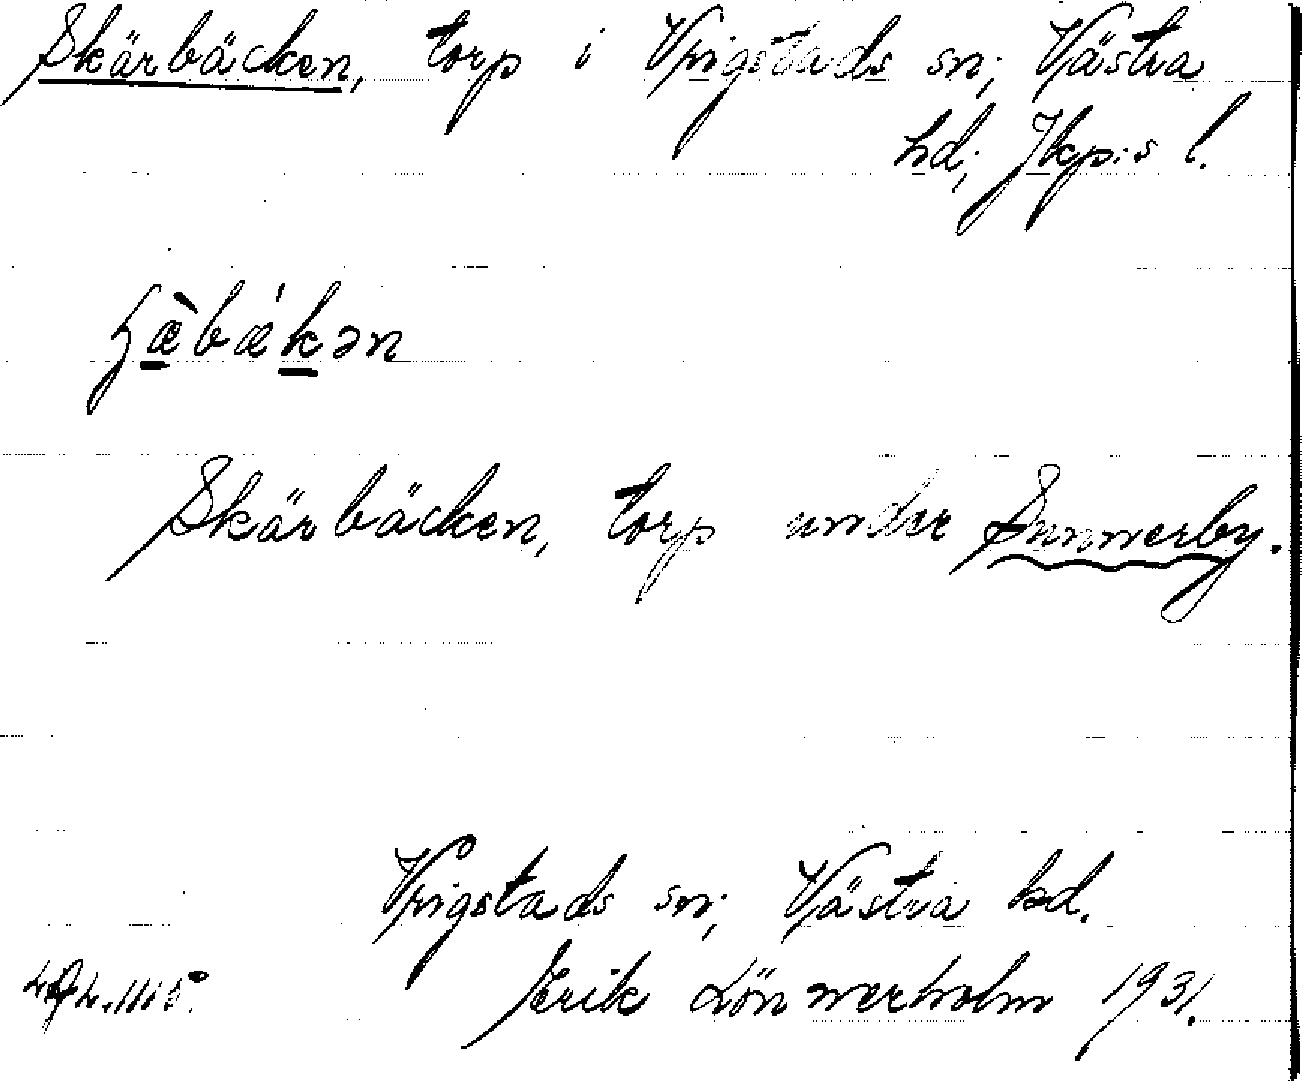 Skärbäcken, torp i Vrigstads sn; Västra
hd; Jkp:s l.
Skärbäcken, torp under Sunnerby.
Vrigstads sn; Västra hd.
Erik Lönnerholm 1931.